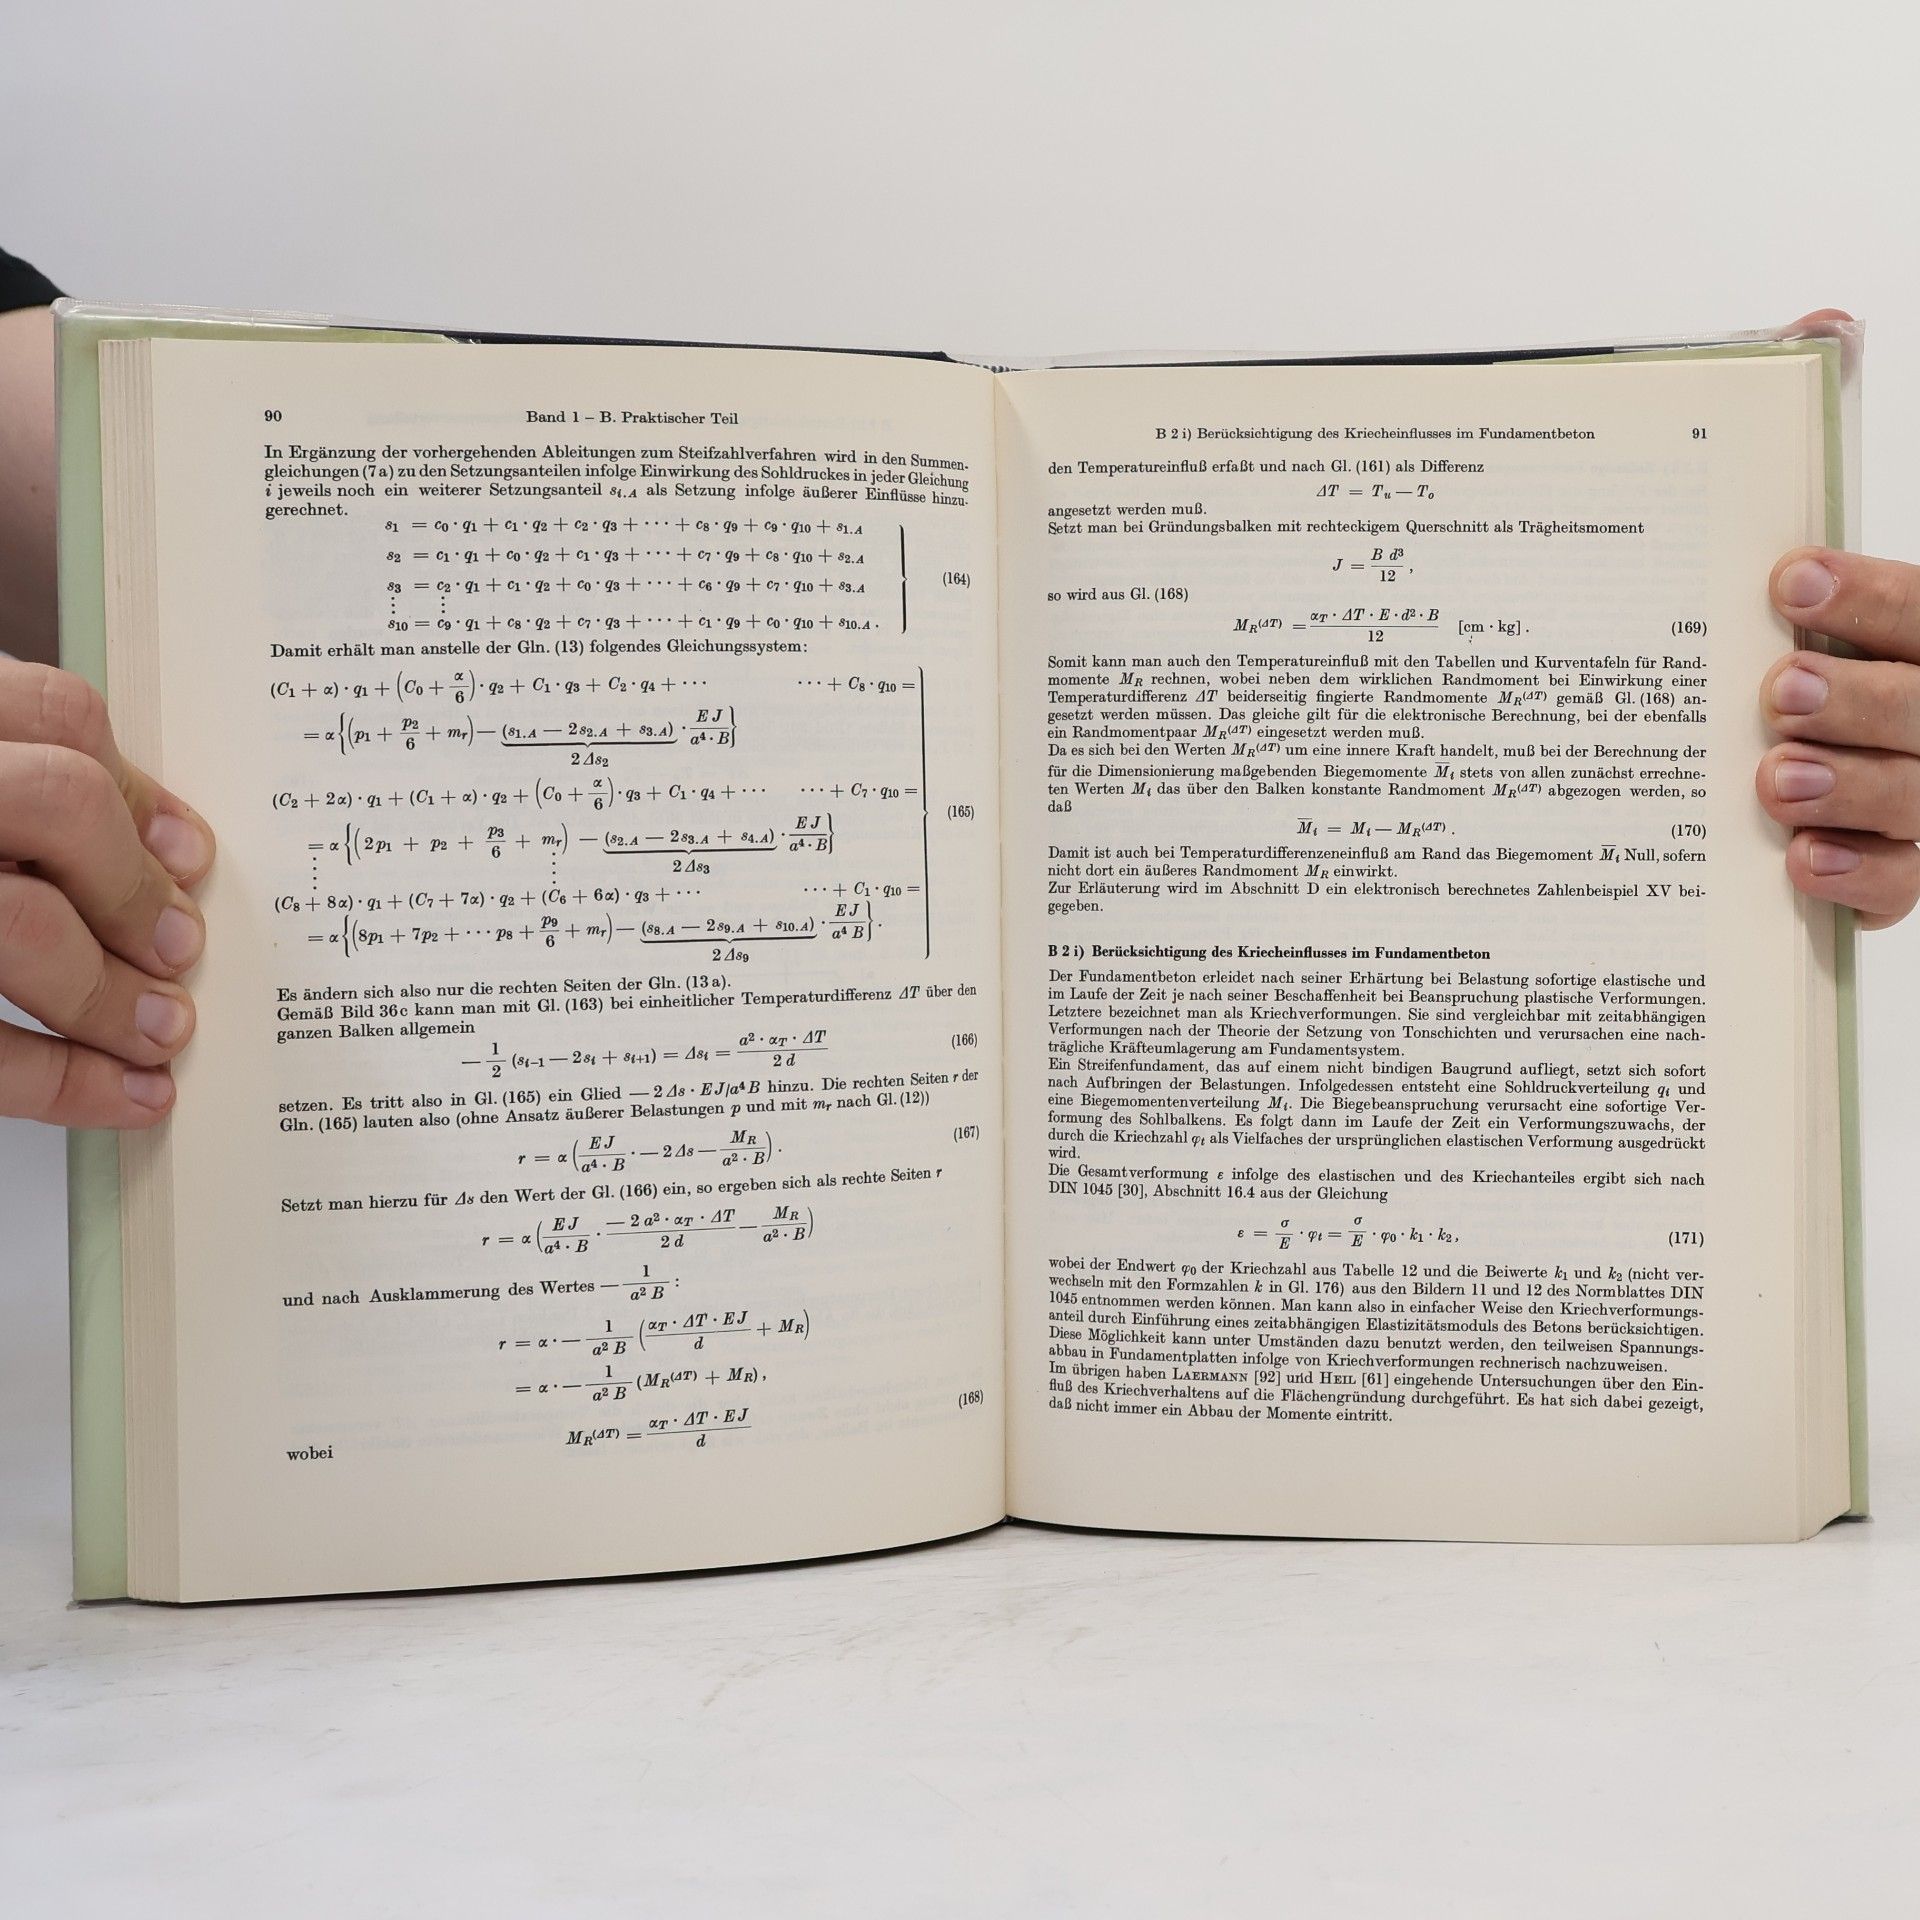 90
Band 1 – B. Praktischer Teil
In Ergänzung der vorhergehenden Ableitungen zum Steifzahlverfahren wird in den Summen-
gleichungen (7 a) zu den Setzungsanteilen infolge Einwirkung des Sohldruckes in jeder Gleichung
i jeweils noch ein weiterer Setzungsanteil s_{i.A} als Setzung infolge äußerer Einflüsse hinzu-
gerechnet.
s₁ = c₀ · q₁ + c₁ · q₂ + c₂ · q₃ + · · · + c₈ · q₉ + c₉ · q₁₀ + s_{1.A}
s₂ = c₁ · q₁ + c₀ · q₂ + c₁ · q₃ + · · · + c₇ · q₉ + c₈ · q₁₀ + s_{2.A}
s₃ = c₂ · q₁ + c₁ · q₂ + c₀ · q₃ + · · · + c₆ · q₉ + c₇ · q₁₀ + s_{3.A}
(164)
⋮ ⋮
s₁₀ = c₉ · q₁ + c₈ · q₂ + c₇ · q₃ + · · · + c₁ · q₉ + c₀ · q₁₀ + s_{10.A} .
Damit erhält man anstelle der Gln. (13) folgendes Gleichungssystem:
(C₁ + α) · q₁ + (C₀ + α/6) · q₂ + C₁ · q₃ + C₂ · q₄ + · · · · · · + C₈ · q₁₀ =
= α {(p₁ + p₂/6 + m_r) — (s_{1.A} — 2s_{2.A} + s_{3.A}) · EJ/(a⁴ · B)}
2 Δs₂
(C₂ + 2α) · q₁ + (C₁ + α) · q₂ + (C₀ + α/6) · q₃ + C₁ · q₄ + · · · · · · + C₇ · q₁₀ =
(165)
= α {(2p₁ + p₂ + p₃/6 + m_r) — (s_{2.A} — 2s_{3.A} + s_{4.A}) · EJ/(a⁴ · B)}
2 Δs₃
⋮ ⋮
(C₈ + 8α) · q₁ + (C₇ + 7α) · q₂ + (C₆ + 6α) · q₃ + · · · · · · + C₁ · q₁₀ =
= α {(8p₁ + 7p₂ + · · · p₈ + p₉/6 + m_r) — (s_{8.A} — 2s_{9.A} + s_{10.A}) · EJ/(a⁴ B)} .
2 Δs₉
Es ändern sich also nur die rechten Seiten der Gln. (13 a).
Gemäß Bild 36c kann man mit Gl. (163) bei einheitlicher Temperaturdifferenz ΔT über den
ganzen Balken allgemein
— 1/2 (s_{i−1} — 2s_i + s_{i+1}) = Δs_i = (a² · α_T · ΔT)/(2 d) (166)
setzen. Es tritt also in Gl. (165) ein Glied — 2 Δs · EJ/a⁴ B hinzu. Die rechten Seiten r der
Gln. (165) lauten also (ohne Ansatz äußerer Belastungen p und mit m_r nach Gl. (12))
r = α (EJ/(a⁴ · B) · — 2 Δs — M_R/(a² · B)) . (167)
Setzt man hierzu für Δs den Wert der Gl. (166) ein, so ergeben sich als rechte Seiten r
r = α (EJ/(a⁴ · B) · (— 2 a² · α_T · ΔT)/(2 d) — M_R/(a² · B))
und nach Ausklammerung des Wertes — 1/(a² B) :
r = α · — 1/(a² B) ((α_T · ΔT · EJ)/d + M_R)
= α · — 1/(a² B) (M_R(ΔT) + M_R) ,
(168)
wobei M_R(ΔT) = (α_T · ΔT · EJ)/d
B 2 i) Berücksichtigung des Kriecheinflusses im Fundamentbeton
91
den Temperatureinfluß erfaßt und nach Gl. (161) als Differenz
ΔT = T_u — T_o
angesetzt werden muß.
Setzt man bei Gründungsbalken mit rechteckigem Querschnitt als Trägheitsmoment
J = B d³/12 ,
so wird aus Gl. (168)
M_R(ΔT) = (α_T · ΔT · E · d² · B)/12 [cm · kg] . (169)
Somit kann man auch den Temperatureinfluß mit den Tabellen und Kurventafeln für Rand-
momente M_R rechnen, wobei neben dem wirklichen Randmoment bei Einwirkung einer
Temperaturdifferenz ΔT beiderseitig fingierte Randmomente M_R(ΔT) gemäß Gl. (168) an-
gesetzt werden müssen. Das gleiche gilt für die elektronische Berechnung, bei der ebenfalls
ein Randmomentpaar M_R(ΔT) eingesetzt werden muß.
Da es sich bei den Werten M_R(ΔT) um eine innere Kraft handelt, muß bei der Berechnung der
für die Dimensionierung maßgebenden Biegemomente M̅_i stets von allen zunächst errechne-
ten Werten M_i das über den Balken konstante Randmoment M_R(ΔT) abgezogen werden, so
daß
M̅_i = M_i — M_R(ΔT) . (170)
Damit ist auch bei Temperaturdifferenzeneinfluß am Rand das Biegemoment M̅_i Null, sofern
nicht dort ein äußeres Randmoment M_R einwirkt.
Zur Erläuterung wird im Abschnitt D ein elektronisch berechnetes Zahlenbeispiel XV bei-
gegeben.
B 2 i) Berücksichtigung des Kriecheinflusses im Fundamentbeton
Der Fundamentbeton erleidet nach seiner Erhärtung bei Belastung sofortige elastische und
im Laufe der Zeit je nach seiner Beschaffenheit bei Beanspruchung plastische Verformungen.
Letztere bezeichnet man als Kriechverformungen. Sie sind vergleichbar mit zeitabhängigen
Verformungen nach der Theorie der Setzung von Tonschichten und verursachen eine nach-
trägliche Kräfteumlagerung am Fundamentsystem.
Ein Streifenfundament, das auf einem nicht bindigen Baugrund aufliegt, setzt sich sofort
nach Aufbringen der Belastungen. Infolgedessen entsteht eine Sohldruckverteilung q_i und
eine Biegemomentenverteilung M_i. Die Biegebeanspruchung verursacht eine sofortige Ver-
formung des Sohlbalkens. Es folgt dann im Laufe der Zeit ein Verformungszuwachs, der
durch die Kriechzahl φ_t als Vielfaches der ursprünglichen elastischen Verformung ausgedrückt
wird.
Die Gesamtverformung ε infolge des elastischen und des Kriechanteiles ergibt sich nach
DIN 1045 [30], Abschnitt 16.4 aus der Gleichung
ε = σ/E · φ_t = σ/E · φ₀ · k₁ · k₂ , (171)
wobei der Endwert φ₀ der Kriechzahl aus Tabelle 12 und die Beiwerte k₁ und k₂ (nicht ver-
wechseln mit den Formzahlen k in Gl. 176) aus den Bildern 11 und 12 des Normblattes DIN
1045 entnommen werden können. Man kann also in einfacher Weise den Kriechverformungs-
anteil durch Einführung eines zeitabhängigen Elastizitätsmoduls des Betons berücksichtigen.
Diese Möglichkeit kann unter Umständen dazu benutzt werden, den teilweisen Spannungs-
abbau in Fundamentplatten infolge von Kriechverformungen rechnerisch nachzuweisen.
Im übrigen haben LAERMANN [92] und HEIL [61] eingehende Untersuchungen über den Ein-
fluß des Kriechverhaltens auf die Flächengründung durchgeführt. Es hat sich dabei gezeigt,
daß nicht immer ein Abbau der Momente eintritt.